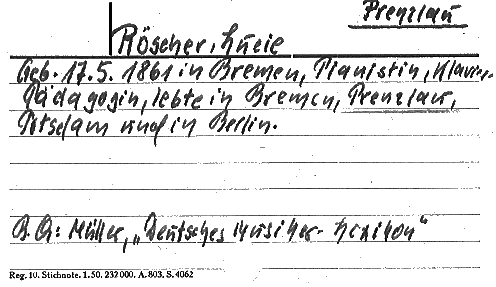 Prenzlau
Röscher, Lucie
Geb. 17.5. 1861 in Bremen, Pianistin, Klavier-
Pädagogin, lebte in Bremen, Prenzlau,
Potsdam und in Berlin.
B.Q: Müller, „Deutsches Musiker-Lexikon“
Reg. 10. Stichnote. 1. 50. 232 000. A. 803. S. 4062